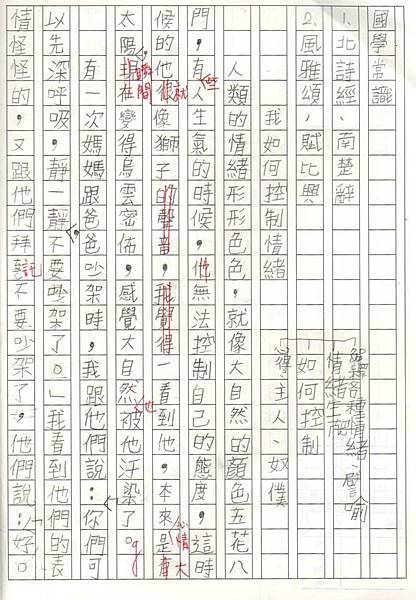 國學常識
1.北詩經、南楚辭
2.風雅頌,賦比興
我如何控制情緒
解釋各種情緒,譬喻
情緒生
如何控制
心得:主人、奴僕
人類的情緒形形色色,就像大自然的顏色五花八
門,有些人生氣的時候,他無法控制自己的態度,這時
候的他很就像獅子的聲音,我覺得一看到他,本來心情是有大
太陽,現在瞬間變得烏雲密佈,感覺大自然也被他汙染了。
有一次媽媽跟爸爸吵架時,我跟他們說:你們可
以先深呼吸,靜一靜不要吵架了。」我看到他們的表
情怪怪的,又跟他們拜託不要吵架了,他們說:好。